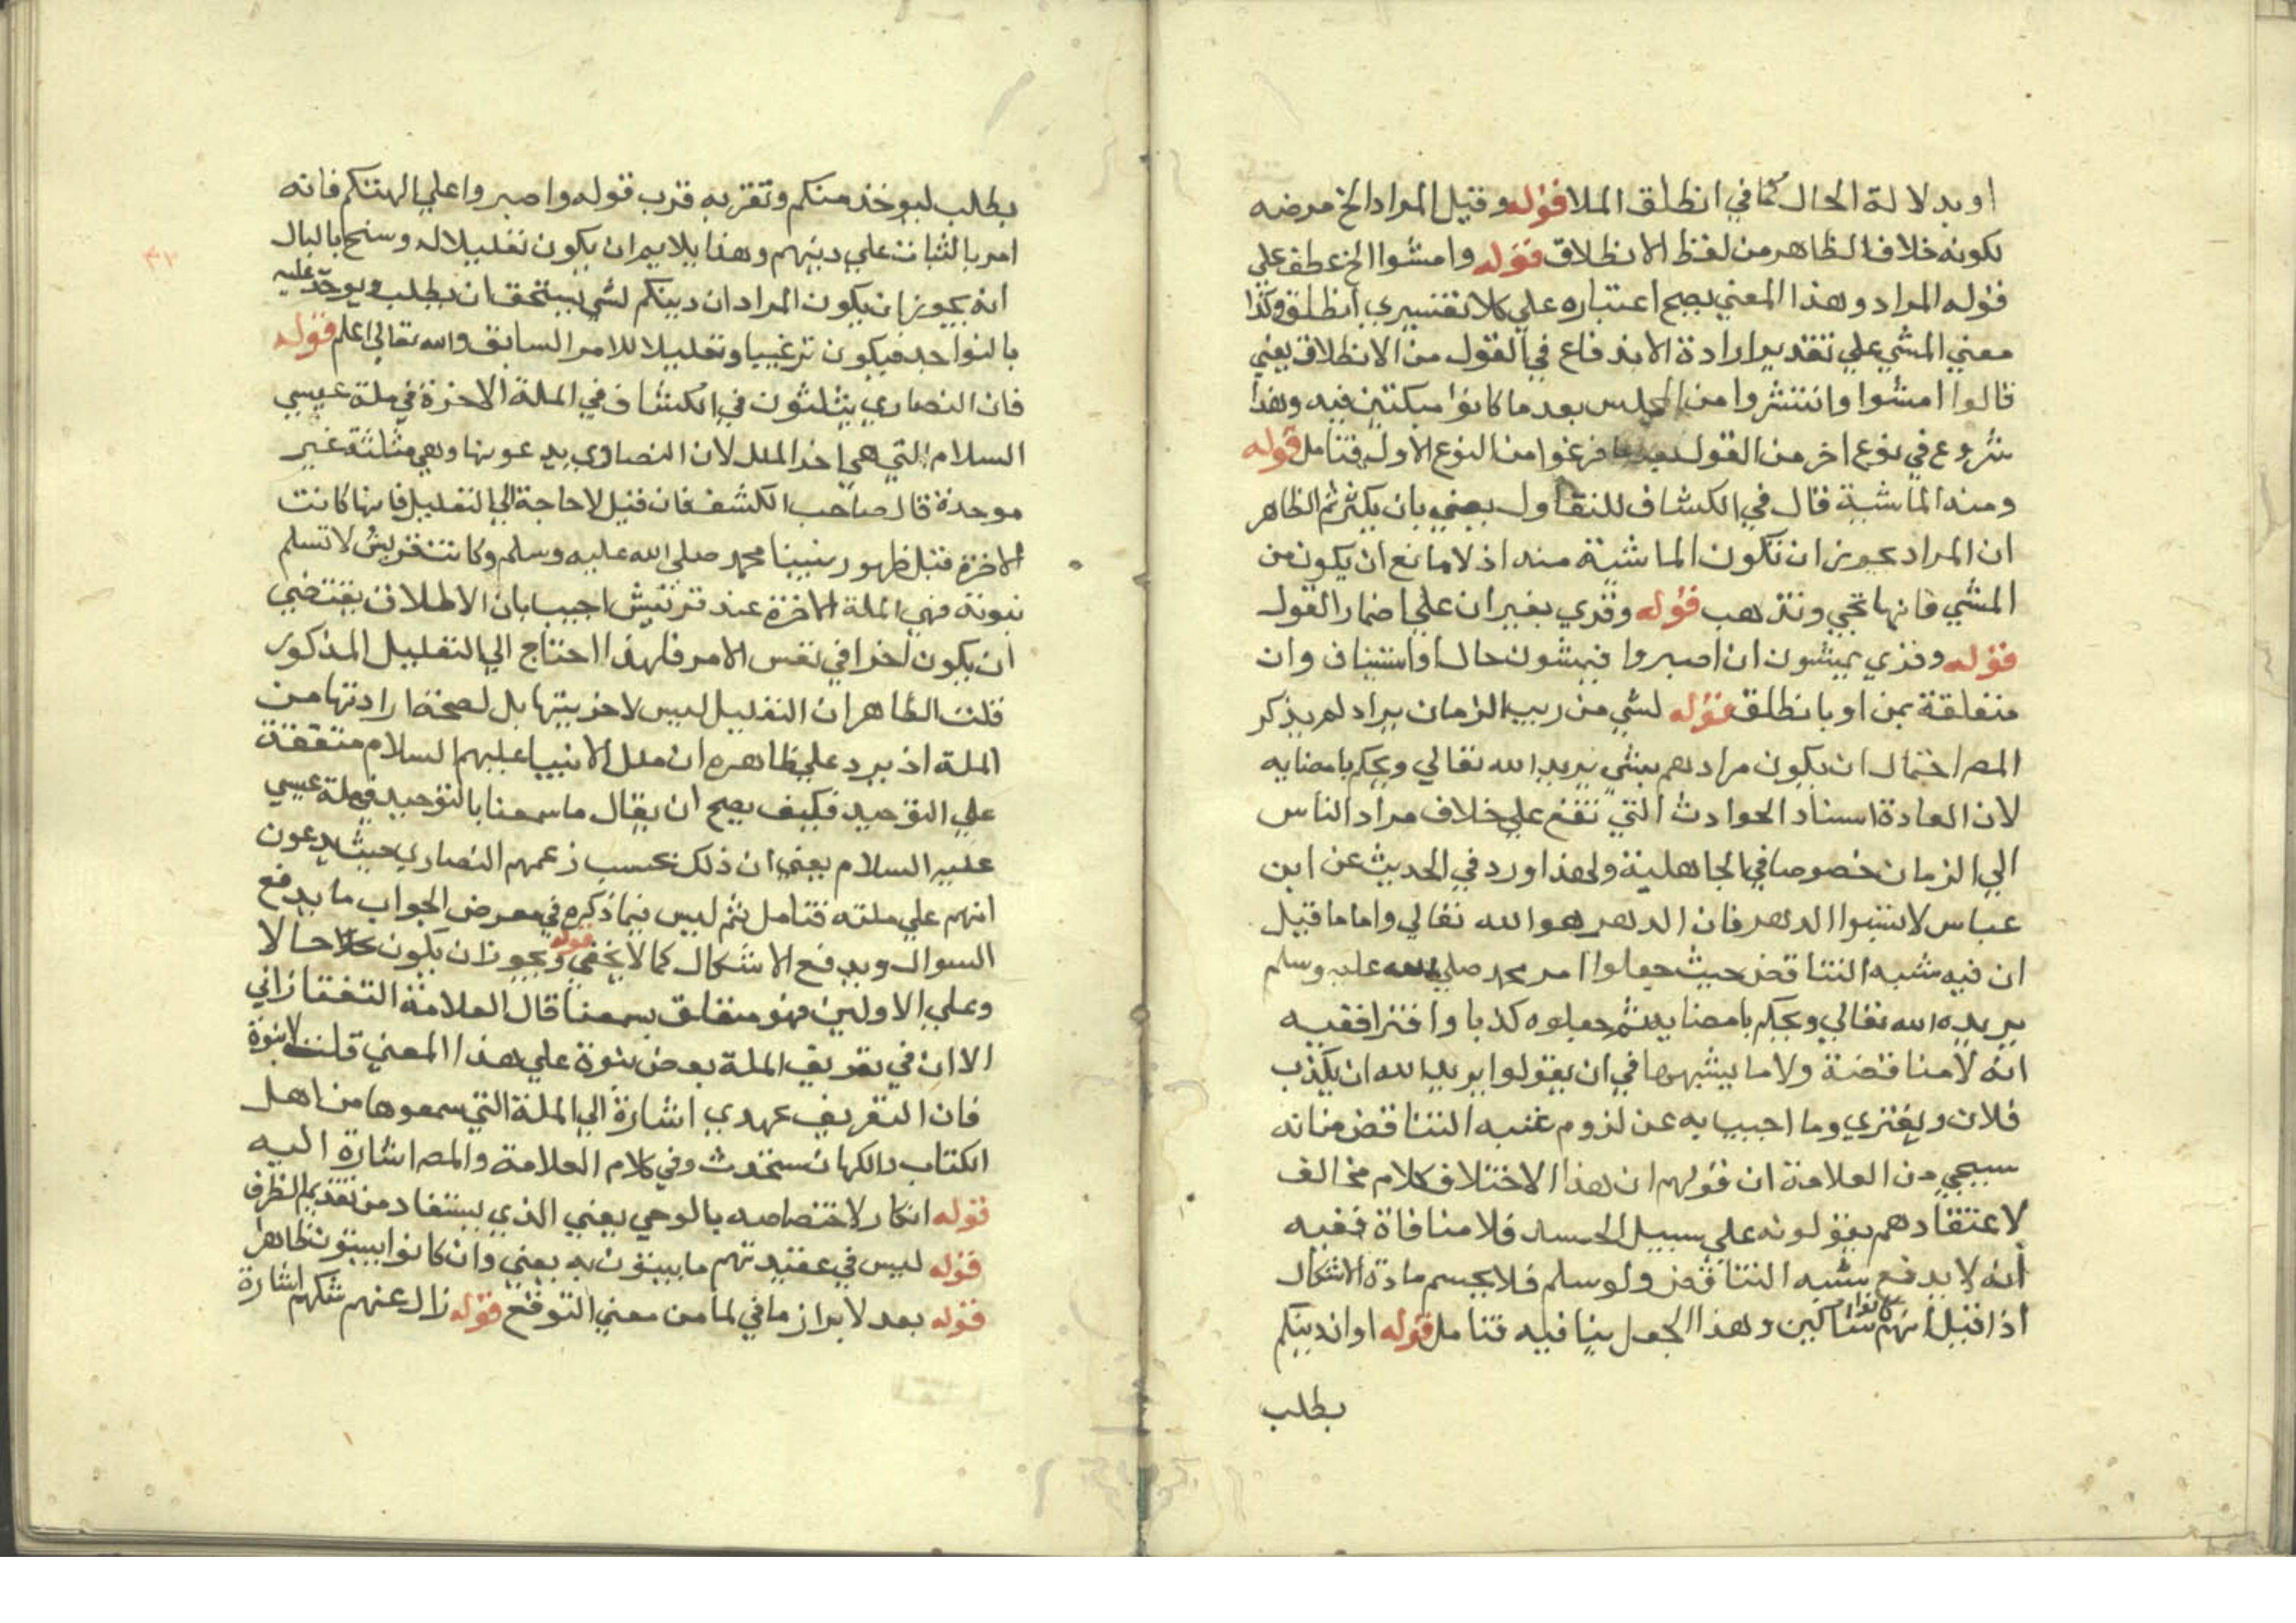 او بدلالة الحال كما في انطلق الملا قوله وقيل المراد الخ مرضه
لكونه خلاف الظاهر من لفظ الانطلاق قوله وامشوا الخ عطف علي
قوله المراد وهذا المعني يصح اعتباره علي كلا تفسيري انطلق وكذا
معني المشي علي تقدير ارادة الاندفاع في القول من الانطلاق يعني
قالوا امشوا وانتشروا من المجلس بعد ما كانوا مبكتين فيه وهذا
شروع في نوع اخر من القول بعد ما فرغوا من النوع الاول فتامل قوله
ومنه الماشية قال في الكشاف للتفاول يعني بان يكثر ثم الظاهر
ان المراد يجوز ان تكون الماشية منه اذ لا مانع ان يكون من
المشي فانها تجي وتذهب قوله وقري بغير ان علي اضمار القول
قوله وقري يمشون ان اصبروا فيمشون حال او استيناف وان
متعلقة بمن او بانطلق قوله لشي من ريب الزمان يراد لم يذكر
المص احتمال ان يكون مرادهم بشي يريد الله تعالي ويحكم بامضايه
لان العادة اسناد الحوادث التي تقع علي خلاف مراد الناس
الي الزمان خصوصا في الجاهلية ولهذا ورد في الحديث عن ابن
عباس لا تسبوا الدهر فان الدهر هو الله تعالي واما ما قيل
ان فيه شبه التناقض حيث جعلوا امر محمد صلي الله عليه وسلم
يريده الله تعالي ويحكم بامضايه ثم جعلوه كذبا وافترا ففيه
انه لا مناقضة ولا ما يشبهها في ان يقولوا يريد الله ان يكذب
فلان ويفتري وما اجيب به عن لزوم شبه التناقض من انه
سيجي من العلامة ان قولهم ان هذا الا اختلاق كلام مخالف
لاعتقادهم يقولونه علي سبيل الحسد فلا منافاة ففيه
انه لا يدفع شبه التناقض ولو سلم فلا يحسم مادة الاشكال
اذا قيل انهم كانوا شاكين وهذا الجعل ينافيه فتامل قوله او ان دينكم
يطلب
يطلب ليوخذ منكم وتقربه قرب قوله واصبروا علي الهتكم فانه
امر بالثبات علي دينهم وهذا يلايم ان يكون تعليلا له وسنح بالبال
انه يجوز ان يكون المراد ان دينكم لشي يستحق ان يطلب ويوحد عليه
بالنواجد فيكون ترغيبا وتعليلا للامر السابق والله تعالي اعلم قوله
فان النصاري يثلثون في الكشاف في الملة الاخرة في ملة عيسي
السلام التي هي اخر الملل لان النصاري يدعونها وهي مثلثة غير
موحدة قال صاحب الكشف فان قيل لا حاجة الي التعليل فانها كانت
الاخرة قبل ظهور نبينا محمد صلي الله عليه وسلم وكانت قريش لا تسلم
نبوته فهي الملة الاخرة عند قريش اجيب بان الاطلاق يقتضي
ان يكون اخرا في نفس الامر فلهذا احتاج الي التعليل المذكور
قلت الظاهر ان التعليل ليس لاخريتها بل لصحة ارادتها من
الملة اذ يرد علي ظاهره ان ملل الانبيا عليهم السلام متفقة
علي التوحيد فكيف يصح ان يقال ما سمعنا بالتوحيد في ملة عيسي
عليه السلام يعني ان ذلك بحسب زعمهم النصاري حيث يدعون
انهم علي ملته فتامل ثم ليس فيما ذكره في معرض الجواب ما يدفع
السوال ويدفع الاشكال كما لا يخفي قوله ويجوز ان يكون حالا
وعلي الاولين فهو متعلق بسمعنا قال العلامة التفتازاني
الا ان في تعريف الملة بعض نبوة علي هذا المعني قلت لا نبوة
فان التعريف عهدي اشارة الي الملة التي سمعوها من اهل
الكتاب والكهان ستحدث وفي كلام العلامة والمص اشارة اليه
قوله انكار لاختصاصه بالوحي يعني الذي يستفاد من تقديم الظرف
قوله ليس في عقيدتهم ما يبتون به يعني وان كانوا يبتون ظاهرا
قوله بعد لابراز ما في لما من معني التوقع قوله زال عنهم شكهم اشارة